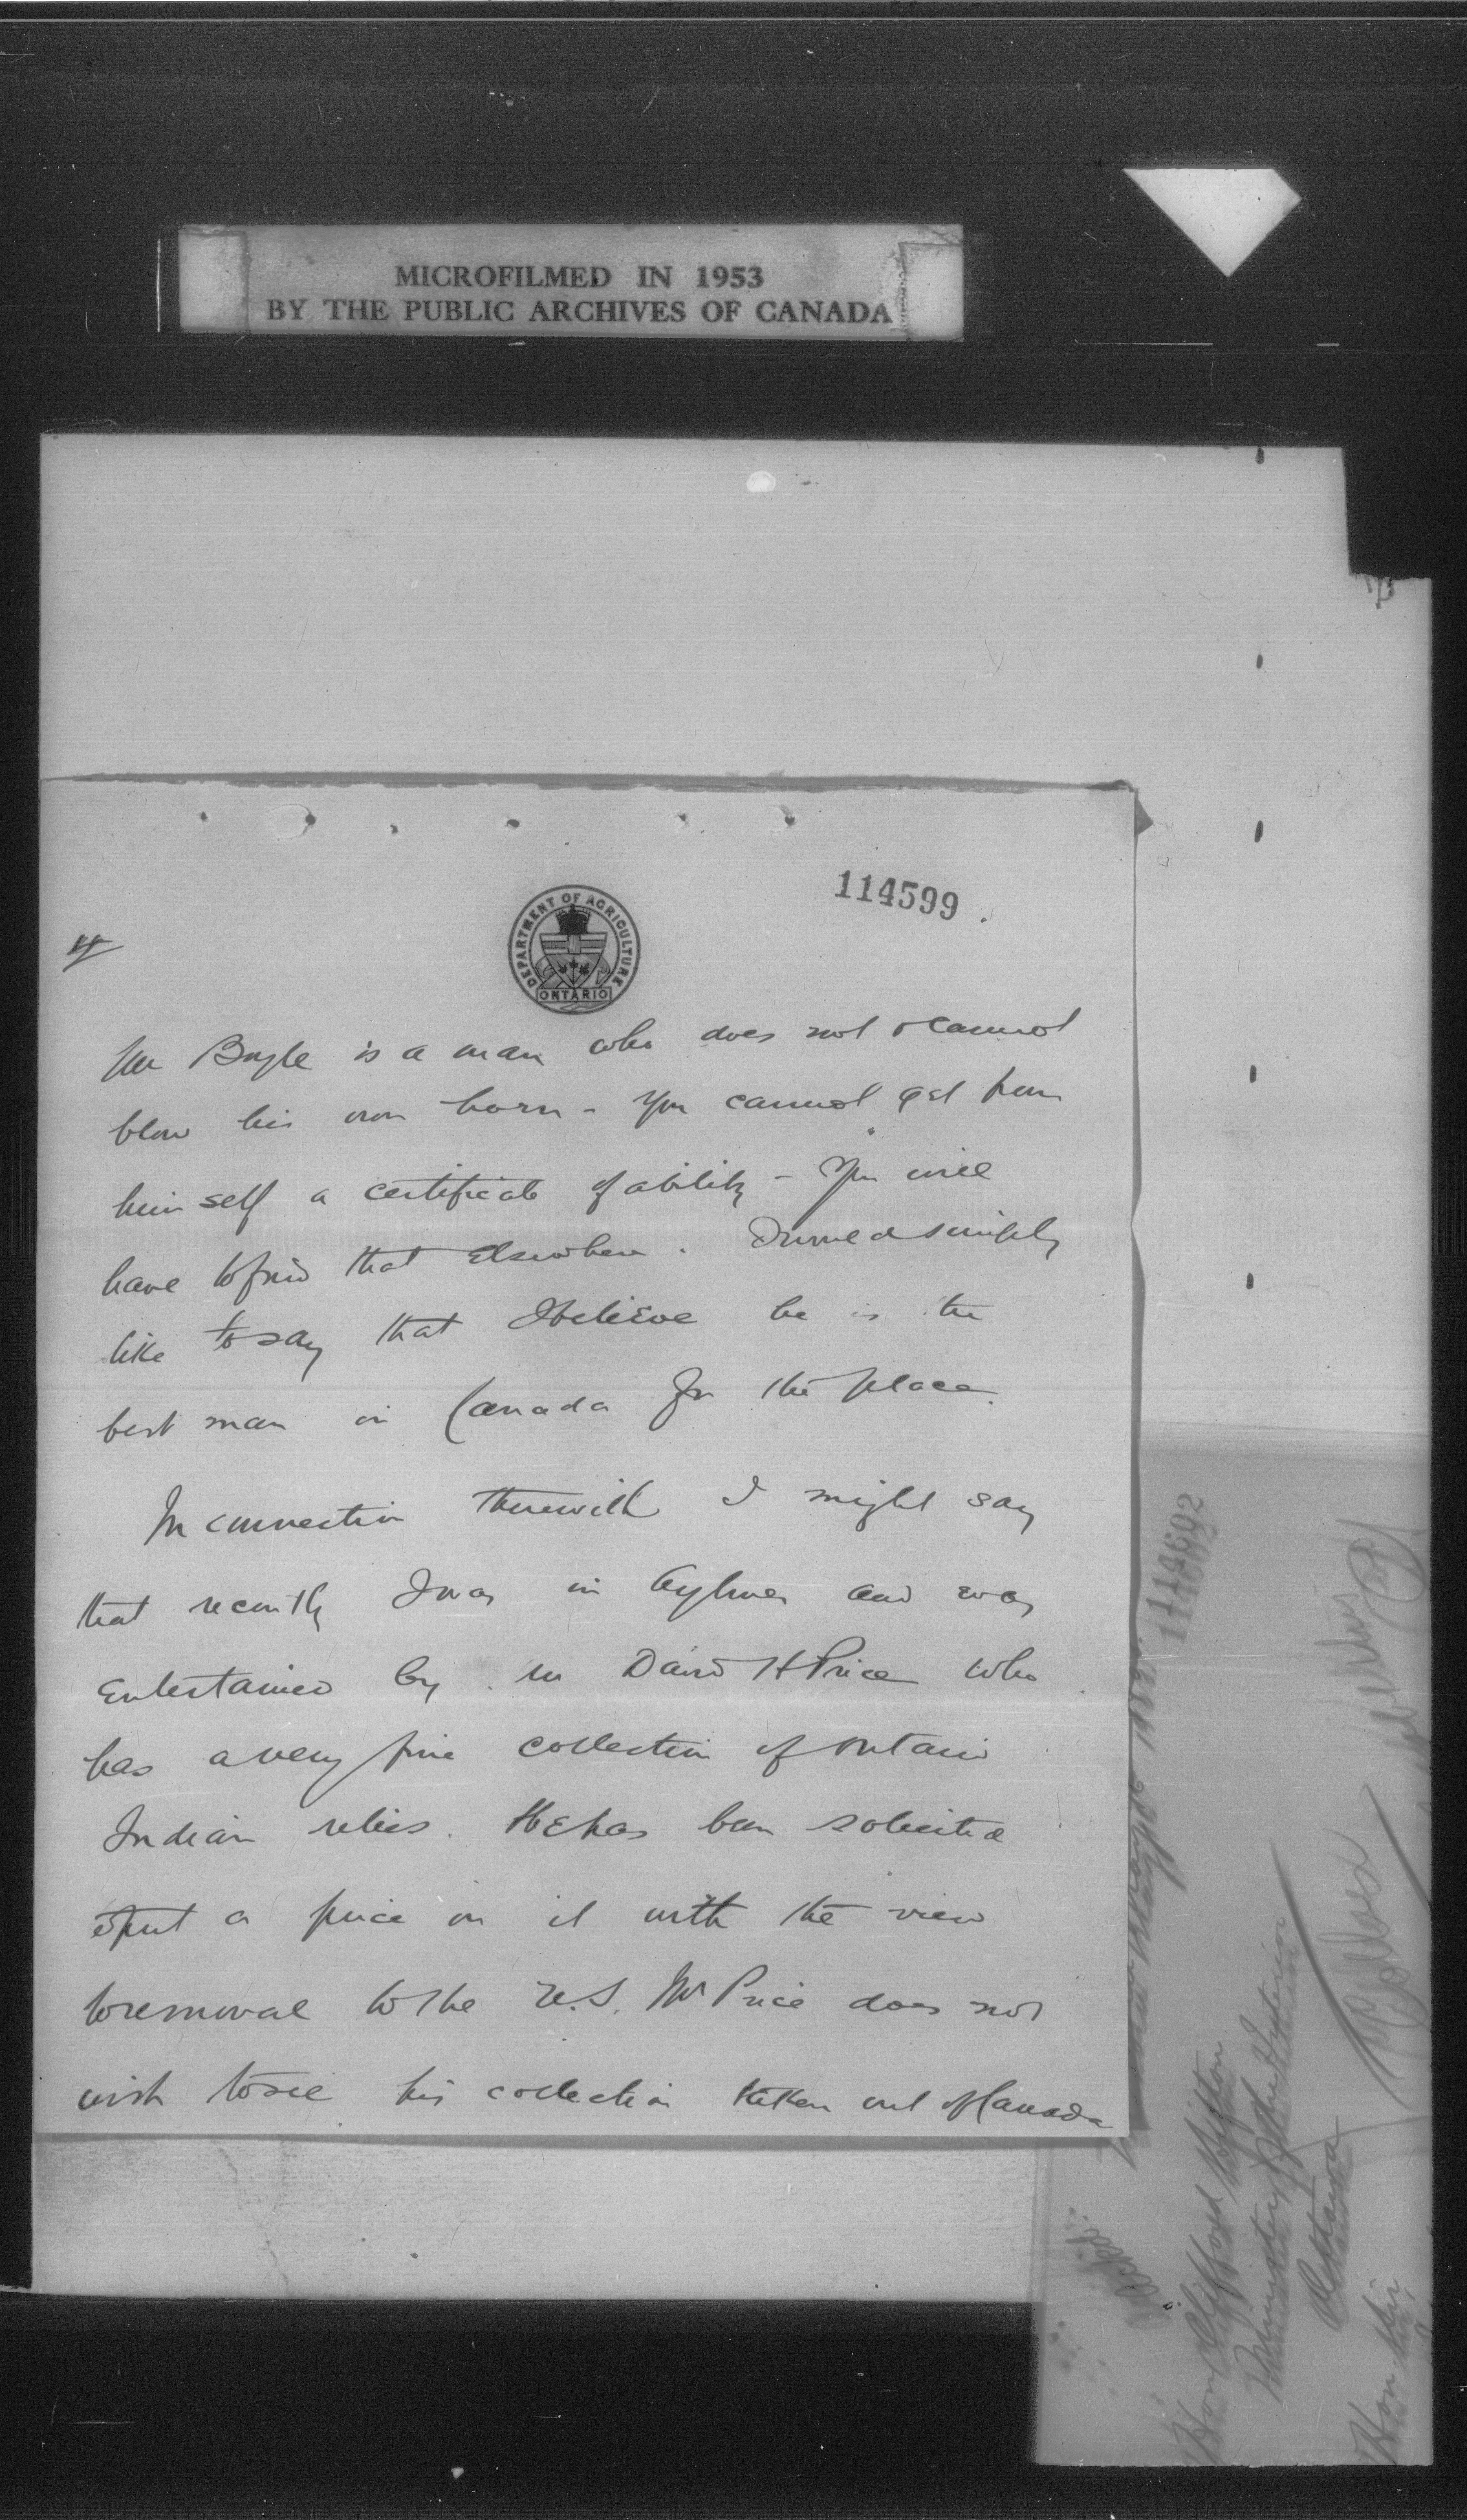 MICROFILMED IN 1953
BY THE PUBLIC ARCHIVES OF CANADA
114599
DEPARTMENT OF AGRICULTURE
ONTARIO
4
Mr Boyle is a man who does not & cannot
blow his own horn - You cannot get from
himself a certificate of ability - You will
have to find that elsewhere. I would simply
like to say that I believe he is the
best man in Canada for the place.
In connection therewith I might say
that recently I was in Aylmer and was
entertained by Mr David H Price who
has a very fine collection of Ontario
Indian relics. He has been solicited
to put a price on it with the view
to removal to the U.S. Mr Price does not
wish to see his collection taken out of Canada
114602
Hon Clifford Sifton
Minister of the Interior
Ottawa
Hon Sir